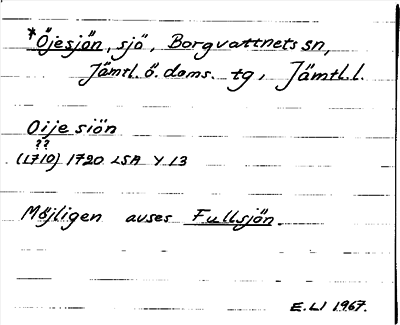 *Öjesjön, sjö, Borgvattnets sn,
Jämtl. ö. doms. tg, Jämtl. l.
Oije siön
??
(1710) 1720 LSA Y 13
Möjligen avses Fullsjön.
E.LI 1967.